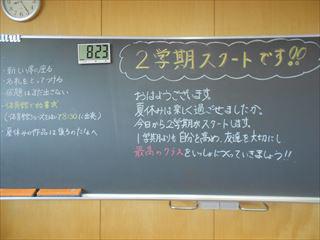 8:23
2学期スタートです!!
・新しい席に座る
・名札をとってつける
・宿題はまだ出さない
・体育館で始業式
(体育館シューズをはいて8:30に出発)
・夏休みの作品は後ろのたなへ
おはようございます。
夏休みは楽しく過ごせましたか。
今日から2学期がスタートします。
1学期よりも自分を高め、友達を大切にし
最高のクラスをいっしょにつくっていきましょう!!